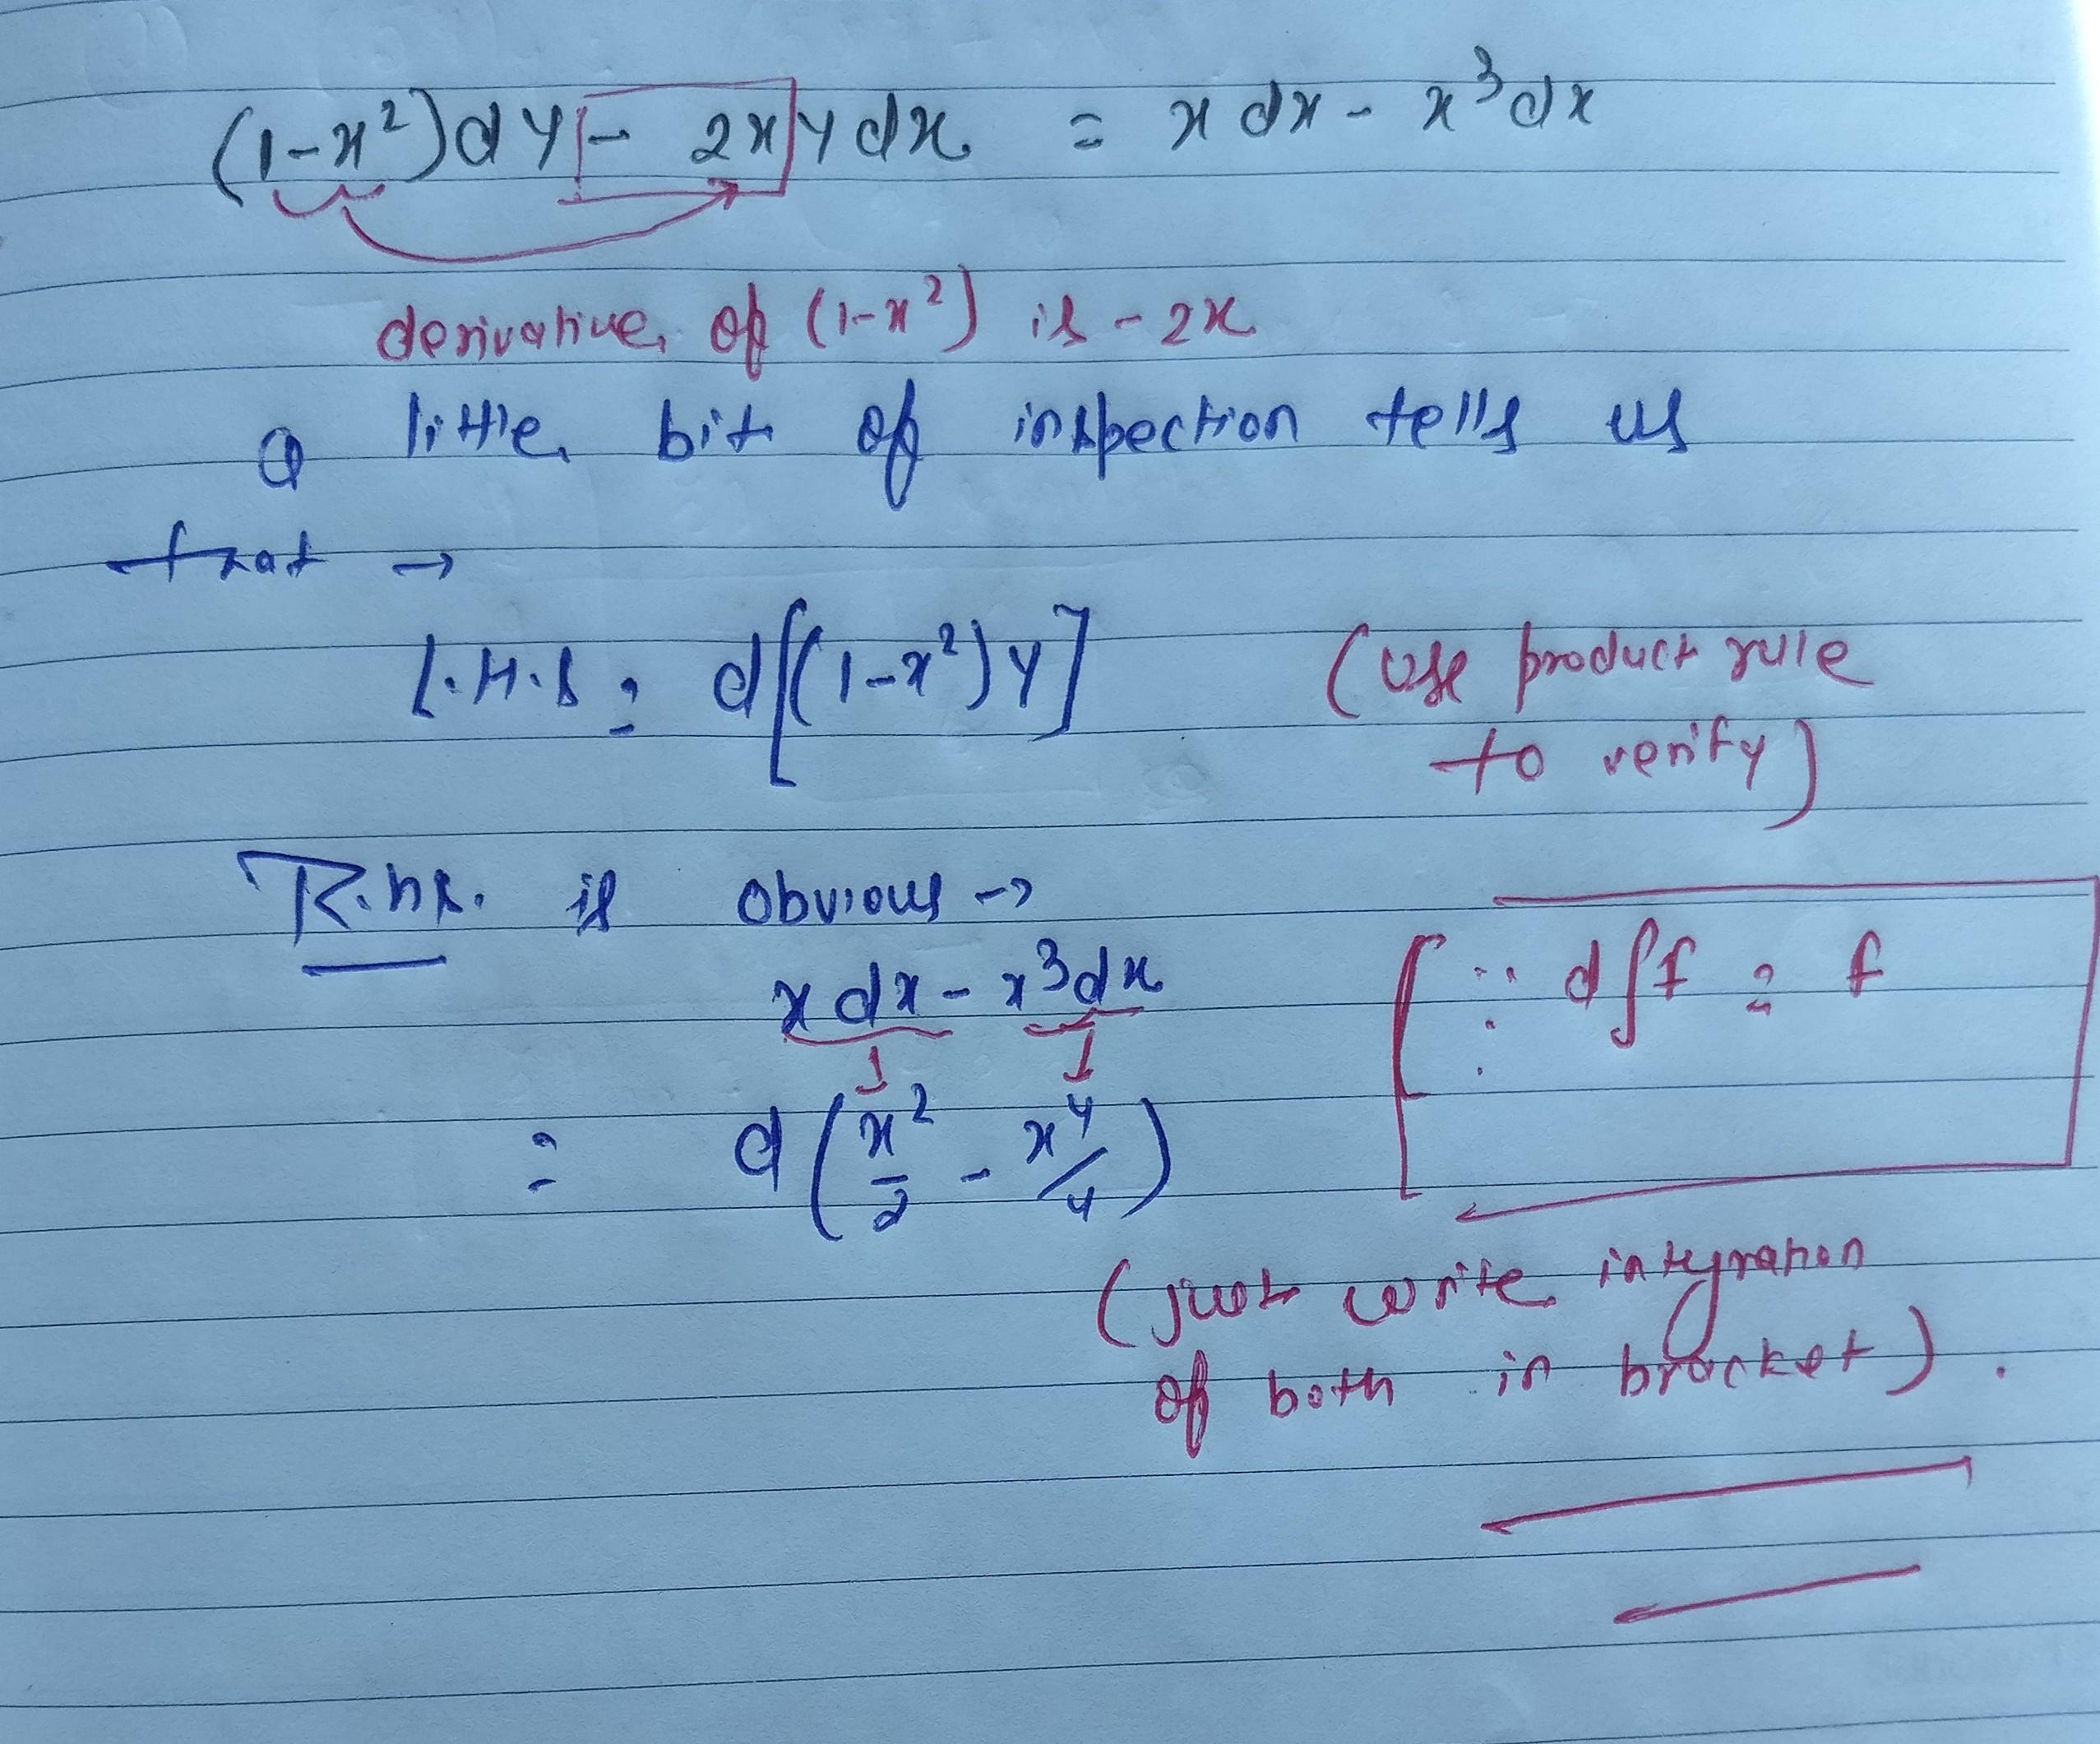 (1-x²)dy - 2xydx = x dx - x³dx
derivative of (1-x²) is -2x
a little bit of inspection tells us
that →
L.H.S = d[(1-x²)y] (use product rule
to verify)
R.hs. is obvious →
x dx - x³dx
[∵ d∫f = f
= d(x²/2 - x⁴/4)
(just write integration
of both in bracket).